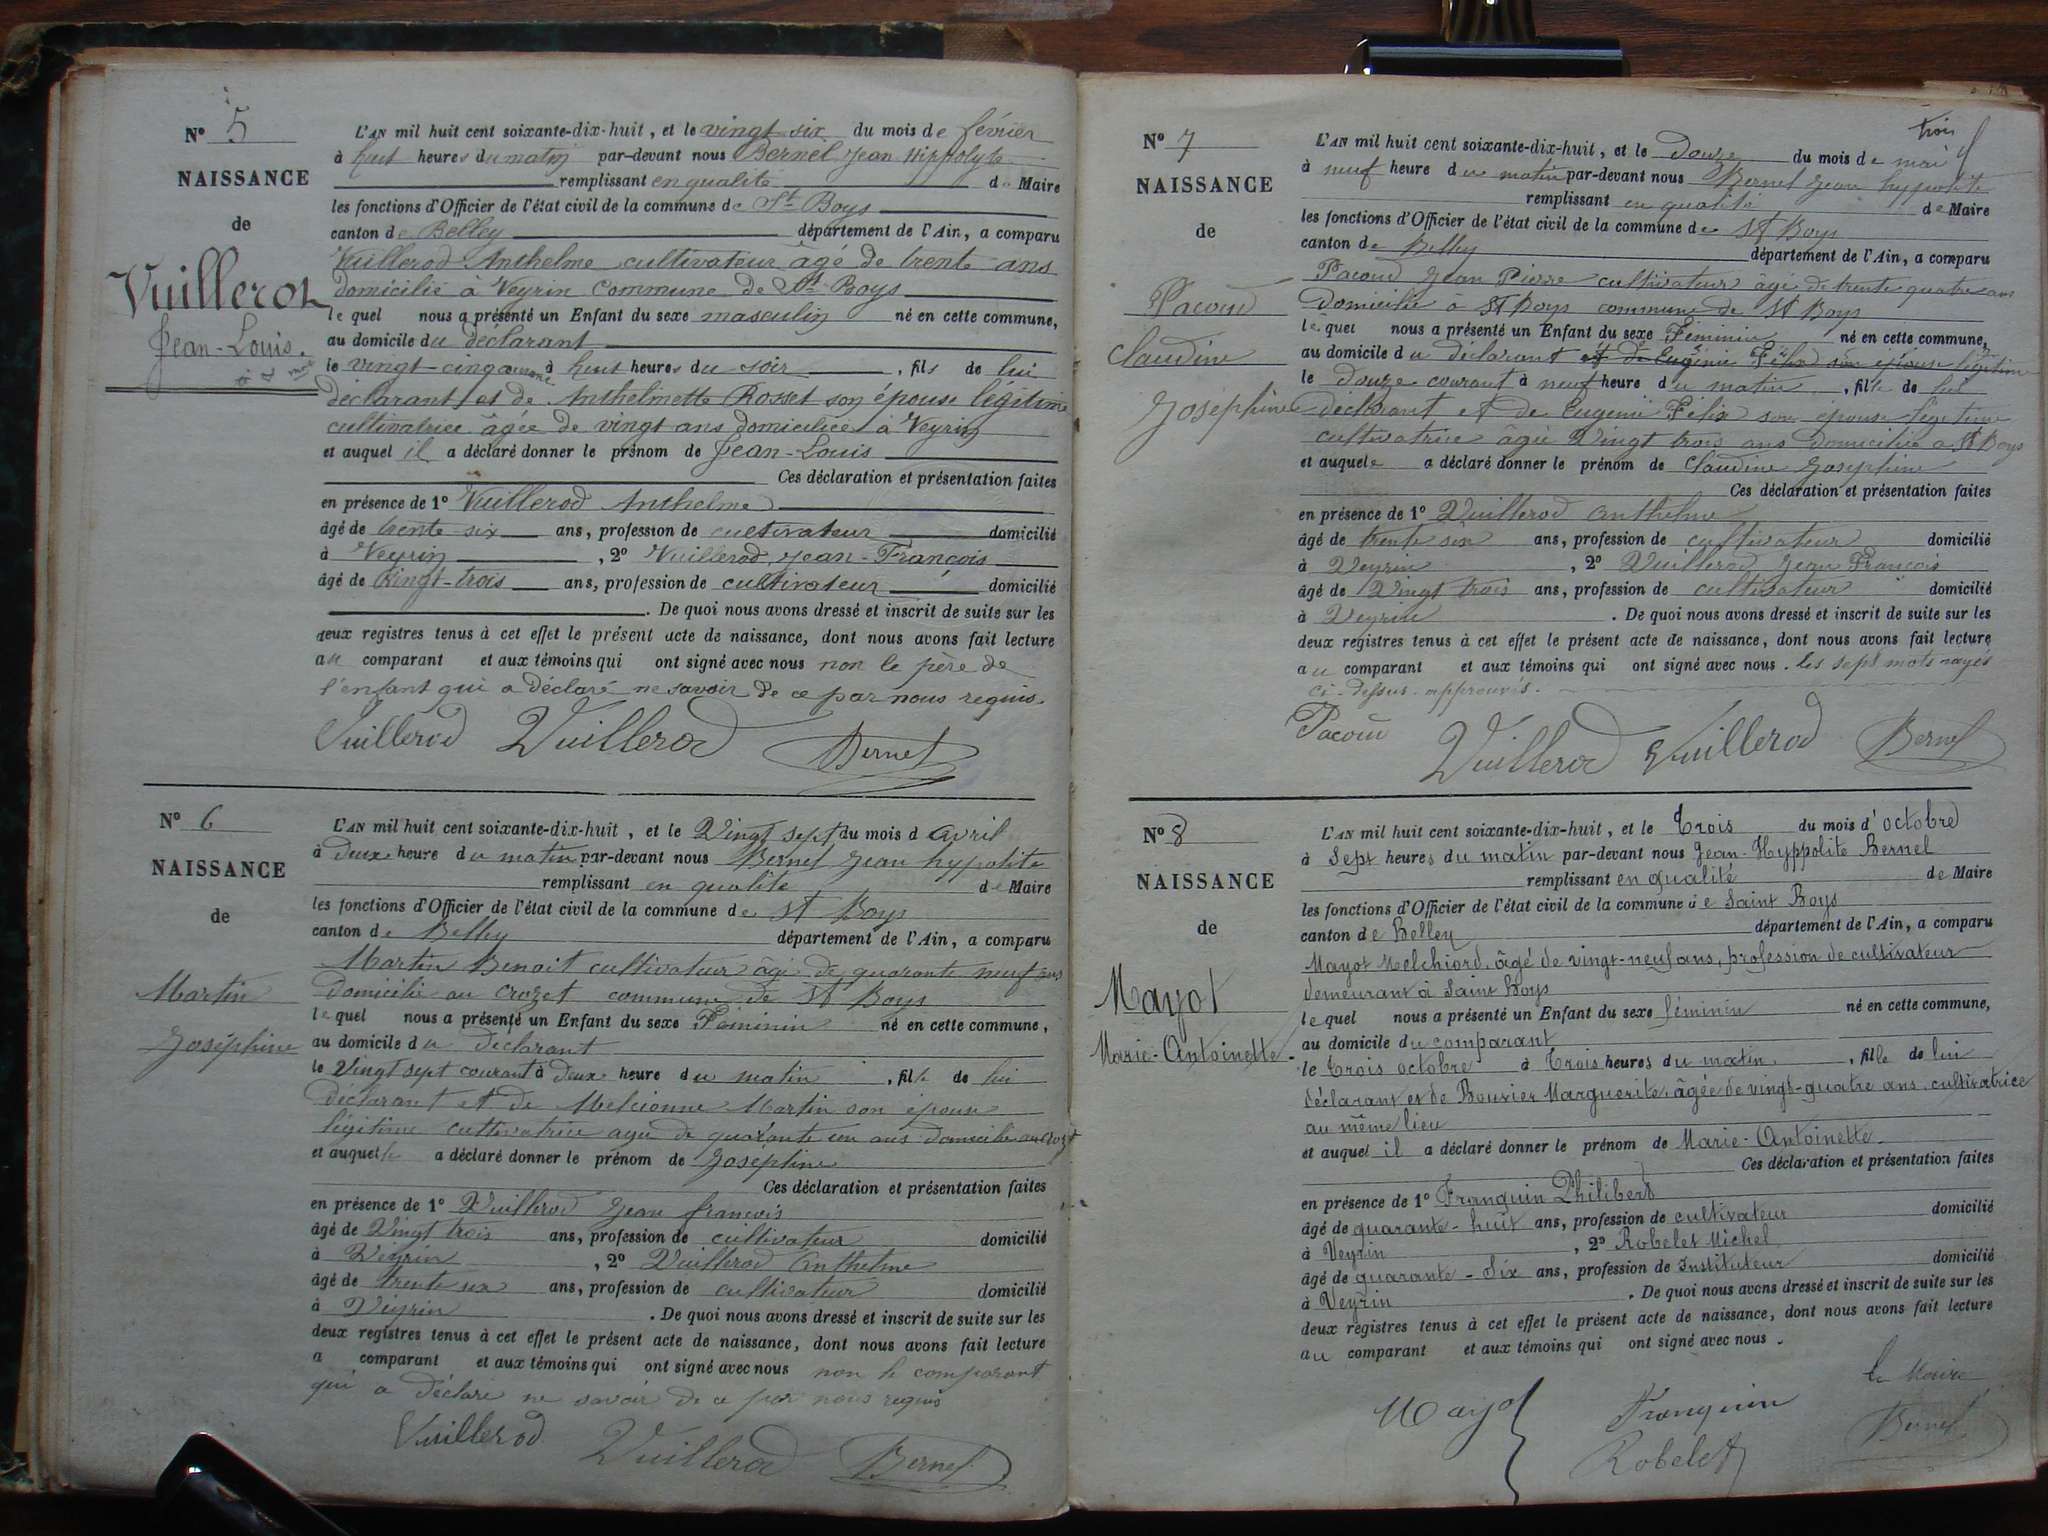 N° 5
NAISSANCE
de
Vuillerot
Jean-Louis.
L'AN mil huit cent soixante-dix-huit, et le vingt-six du mois de février
à huit heures du matin par-devant nous Bernel Jean Hippolyte
remplissant en qualité de Maire
les fonctions d'Officier de l'état civil de la commune de St Boys
canton de Belley département de l'Ain, a comparu
Vuillerod Anthelme cultivateur âgé de trente ans
domicilié à Veyrin commune de St Boys
lequel nous a présenté un Enfant du sexe masculin né en cette commune,
au domicile du déclarant
le vingt-cinq courant à huit heures du soir, fils de lui
déclarant et de Anthelmette Rosset son épouse légitime
cultivatrice âgée de vingt ans domiciliée à Veyrin
et auquel il a déclaré donner le prénom de Jean-Louis
Ces déclaration et présentation faites
en présence de 1° Vuillerod Anthelme
âgé de trente-six ans, profession de cultivateur domicilié
à Veyrin, 2° Vuillerod Jean-François
âgé de vingt-trois ans, profession de cultivateur domicilié
. De quoi nous avons dressé et inscrit de suite sur les
deux registres tenus à cet effet le présent acte de naissance, dont nous avons fait lecture
au comparant et aux témoins qui ont signé avec nous non le père de
l'enfant qui a déclaré ne savoir de ce par nous requis.
Vuillerod Vuillerod Bernel
N° 6
NAISSANCE
de
Martin
Joséphine
L'AN mil huit cent soixante-dix-huit, et le Vingt sept du mois d avril
à deux heure du matin par-devant nous Bernel Jean hypolite
remplissant en qualité de Maire
les fonctions d'Officier de l'état civil de la commune de St Boys
canton de Belley département de l'Ain, a comparu
Martin Benoit cultivateur âgé de quarante neuf ans
domicilié au Crozet commune de St Boys
lequel nous a présenté un Enfant du sexe Féminin né en cette commune,
au domicile du déclarant
le Vingt sept courant à deux heure du matin, fille de lui
déclarant et de Melcionne Martin son épouse
légitime cultivatrice agée de quarante un ans domicilié au
et auquel a déclaré donner le prénom de Joséphine
Ces déclaration et présentation faites
en présence de 1° Vuillerod Jean francois
âgé de Vingt trois ans, profession de cultivateur domicilié
à Veyrin, 2° Vuillerod Anthelme
âgé de trente six ans, profession de cultivateur domicilié
à Veyrin. De quoi nous avons dressé et inscrit de suite sur les
deux registres tenus à cet effet le présent acte de naissance, dont nous avons fait lecture
a comparant et aux témoins qui ont signé avec nous non le comparant
qui a déclaré ne savoir de ce par nous requis
Vuillerod Vuillerod Bernel
N° 7
NAISSANCE
de
Pacoud
Claudine
Joséphine
trois
L'AN mil huit cent soixante-dix-huit, et le douze du mois de mai
à neuf heure du matin par-devant nous Bernel Jean hypolite
remplissant en qualité de Maire
les fonctions d'Officier de l'état civil de la commune de St Boys
canton de Belley département de l'Ain, a comparu
Pacoud Jean Pierre cultivateur âgé de trente quatre ans
domicilié à St Boys commune de St Boys
lequel nous a présenté un Enfant du sexe Féminin né en cette commune,
au domicile du déclarant et de Eugénie Félix son épouse légitime
le douze courant à neuf heure du matin, fille de lui
déclarant et de Eugénie Félix son épouse légitime
cultivatrice âgée Vingt trois ans domiciliée a St Boys
et auquele a déclaré donner le prénom de Claudine Joséphine
Ces déclaration et présentation faites
en présence de 1° Vuillerod Anthelme
âgé de trente six ans, profession de cultivateur domicilié
à Veyrin, 2° Vuillerod Jean François
âgé de Vingt trois ans, profession de cultivateur domicilié
à Veyrin. De quoi nous avons dressé et inscrit de suite sur les
deux registres tenus à cet effet le présent acte de naissance, dont nous avons fait lecture
au comparant et aux témoins qui ont signé avec nous. les sept mots rayés
ci-dessus approuvés.
Pacoud Vuillerod Vuillerod Bernel
N° 8
NAISSANCE
de
Mayot
Marie-Antoinette
L'AN mil huit cent soixante-dix-huit, et le Trois du mois d'octobre
à Sept heures du matin par-devant nous Jean-Hyppolite Bernel
remplissant en qualité de Maire
les fonctions d'Officier de l'état civil de la commune de Saint Boys
canton de Belley département de l'Ain, a comparu
Mayot Melchiord, âgé de vingt-neuf ans, profession de cultivateur
demeurant à Saint Boys
lequel nous a présenté un Enfant du sexe féminin né en cette commune,
au domicile du comparant
le Trois octobre à Trois heures du matin, fille de lui
déclarant et de Bouvier Marguerite, âgée de vingt-quatre ans, cultivatrice
au même lieu
et auquel il a déclaré donner le prénom de Marie-Antoinette.
Ces déclaration et présentation faites
en présence de 1° Franquin Philibert
âgé de quarante-huit ans, profession de cultivateur domicilié
à Veyrin, 2° Robelet Michel
âgé de quarante-Six ans, profession de Instituteur domicilié
à Veyrin. De quoi nous avons dressé et inscrit de suite sur les
deux registres tenus à cet effet le présent acte de naissance, dont nous avons fait lecture
au comparant et aux témoins qui ont signé avec nous.
le Maire
Mayot Franquin Bernel
Robelet